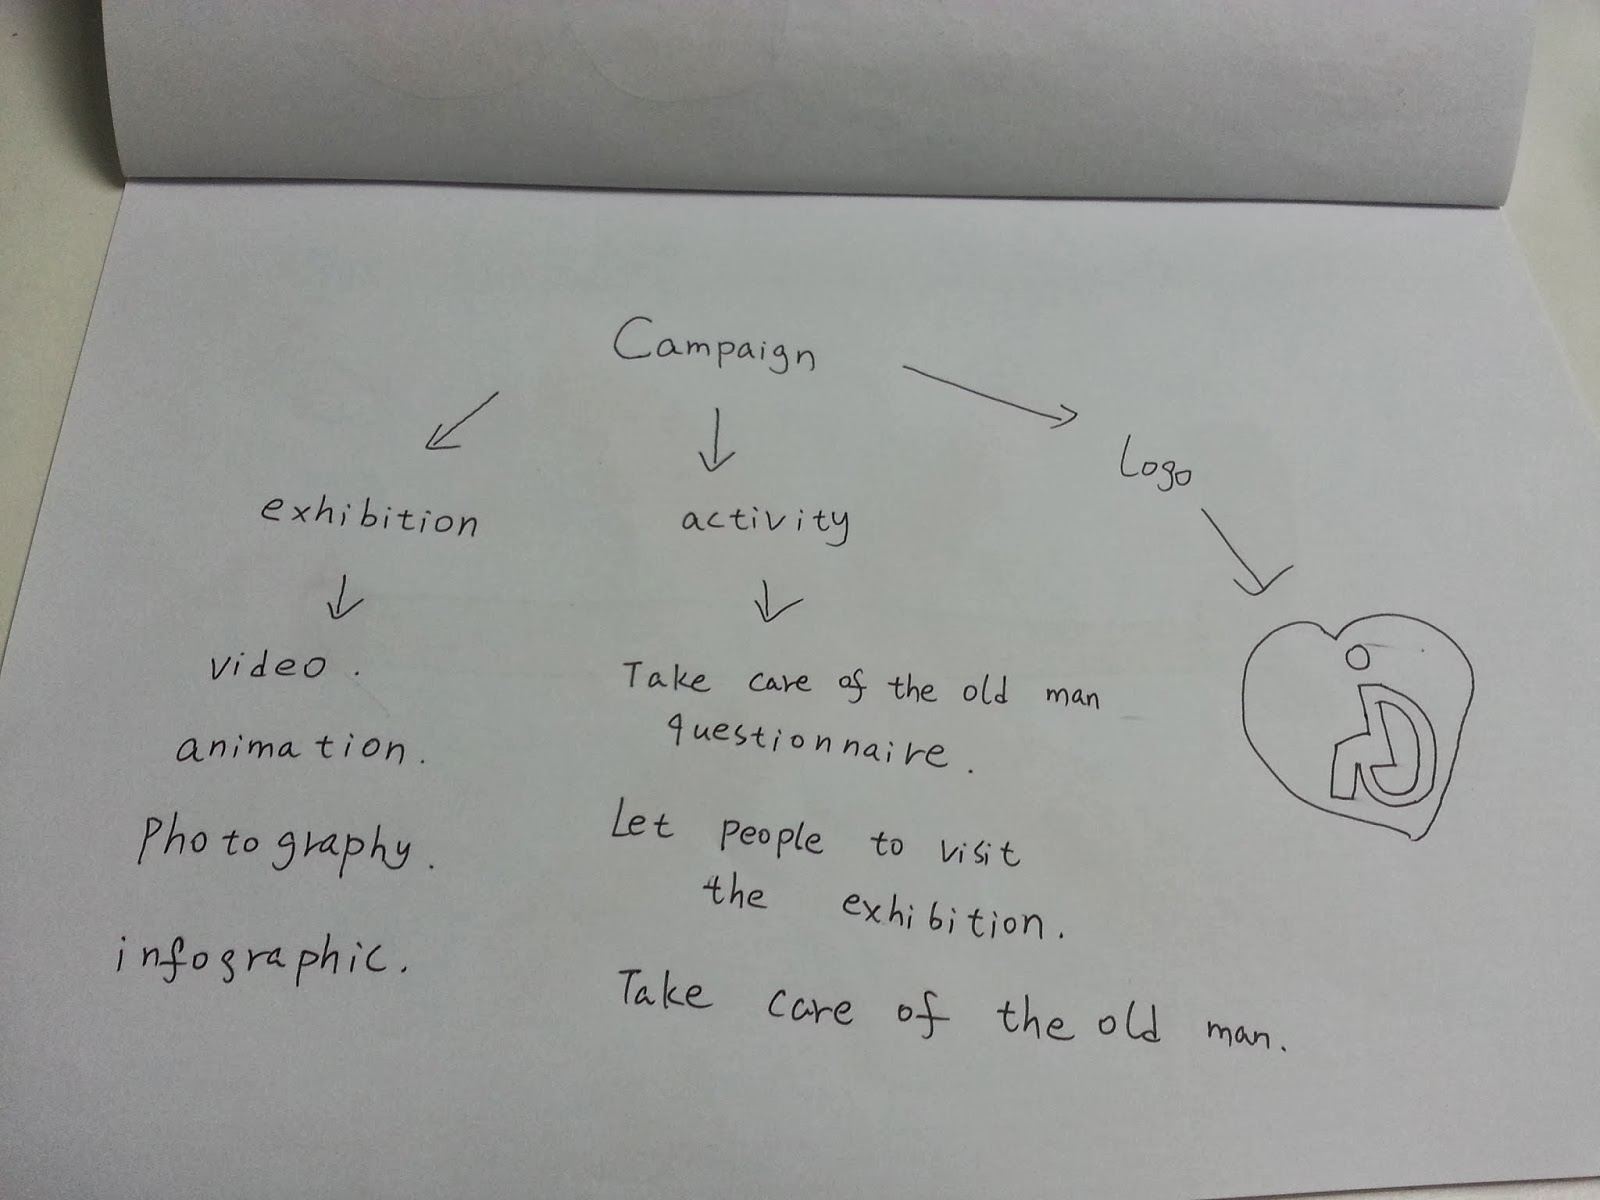 Campaign
Logo
exhibition
activity
video.
animation.
Photography.
infographic.
Take care of the old man
questionnaire.
Let people to visit
the exhibition.
Take care of the old man.